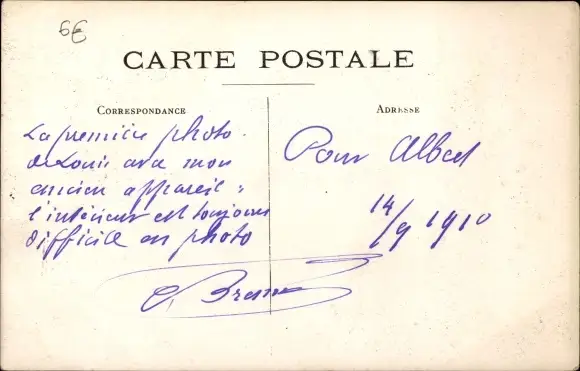 6€
CARTE POSTALE
CORRESPONDANCE
ADRESSE
La première photo
de Louis avec mon
ancien appareil :
l'intérieur est toujours
difficile en photo
Pour Albert
14/9 1910